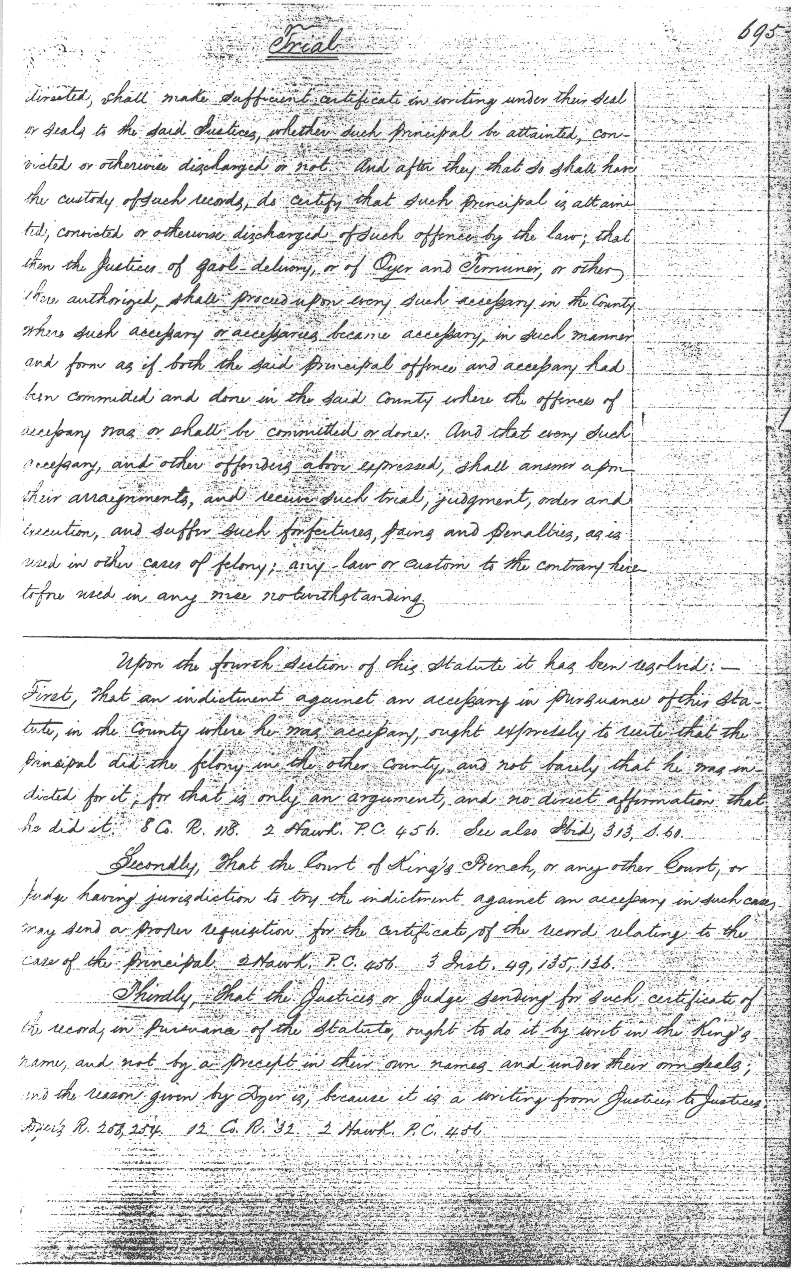 695
Trial
directed, shall make sufficient certificate in writing under their seal
or seals to the said Justices, whether such Principal be attainted, con-
victed or otherwise discharged or not. And after they that so shall have
the custody of such records, do certify that such Principal is attain
ted, convicted or otherwise discharged of such offence by the law; that
then the Justices of gaol-delivery, or of Oyer and Terminer, or other
there authorized, shall proceed upon every such accessary in the County
where such accessary or accessaries became accessary, in such manner
and form as if both the said Principal offence and accessary had
been committed and done in the said County where the offence of
accessary was or shall be committed or done: And that every such
accessary, and other offenders above expressed, shall answer upon
their arraignments, and receive such trial, judgment, order and
execution, and suffer such forfeitures, pains and penalties, as is
used in other cases of felony; any law or custom to the contrary here
tofore used in any wise notwithstanding.
Upon the fourth section of this Statute it has been resolved: —
First, That an indictment against an accessary in pursuance of this Sta-
tute, in the County where he was accessary, ought expressly to recite that the
Principal did the felony in the other County, and not barely that he was in-
dicted for it, for that is only an argument, and no direct affirmation that
he did it. 8 Co. R. 118. 2 Hawk. P.C. 456. See also Ibid, 313, S. 60.
Secondly, That the Court of King's Bench, or any other Court, or
Judge having jurisdiction to try the indictment against an accessary in such case,
may send a proper requisition for the certificate of the record relating to the
case of the Principal. 2 Hawk. P.C. 456. 3 Inst. 49, 135, 136.
Thirdly, That the Justices or Judge sending for such certificate of
the record, in pursuance of the Statute, ought to do it by writ in the King's
name, and not by a precept in their own names and under their own seals;
and the reason given by Dyer is, because it is a writing from Justices to Justices.
Dyer's R. 253, 254. 12 Co. R. 32. 2 Hawk. P.C. 456